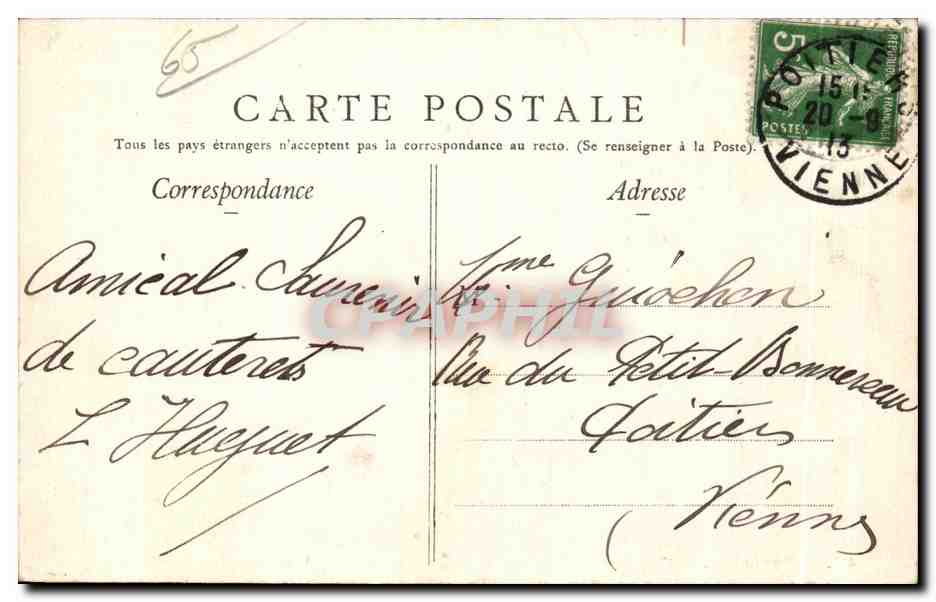 65
CARTE POSTALE
Tous les pays étrangers n'acceptent pas la correspondance au recto. (Se renseigner à la Poste).
5c
REPUBLIQUE FRANÇAISE
POSTES
POITIERS
15 15
20 -9
13
VIENNE
Correspondance
Amical Souvenir
de cauterets
L Huguet
Adresse
Mme Guiochon
Rue du Petit-Bonneveau
Poitiers
Vienne
CPAPHIL